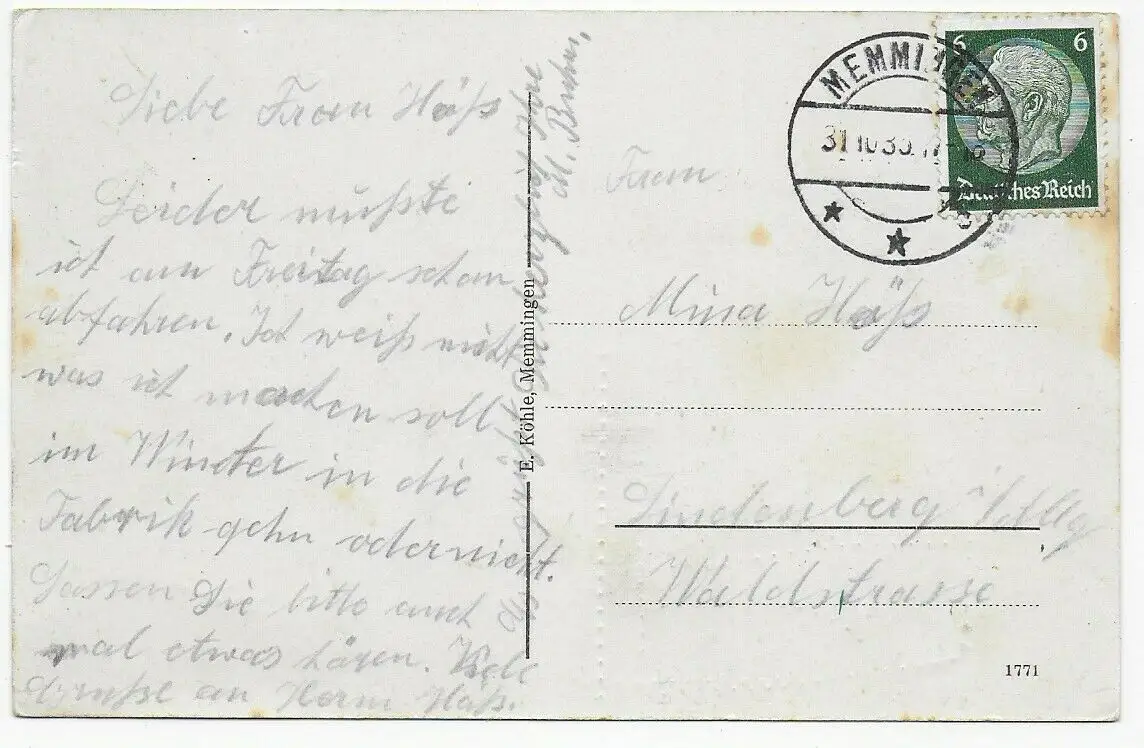 Liebe Frau Häß
Leider mußte
ich am Freitag schon
abfahren. Ich weiß nicht
was ich machen soll
im Winter in die
Fabrik gehn oder nicht.
Lassen Sie bitte auch
mal etwas hören. Viele
Grüße an Herrn Häß.
Es grüßt Sie herzlichst Ihre
M.
E. Köhle, Memmingen
MEMMINGEN
31.10.35.17-18
6 6
Deutsches Reich
Frau
Mina Häß
Lindenberg /Allg
Waldstrasse
1771